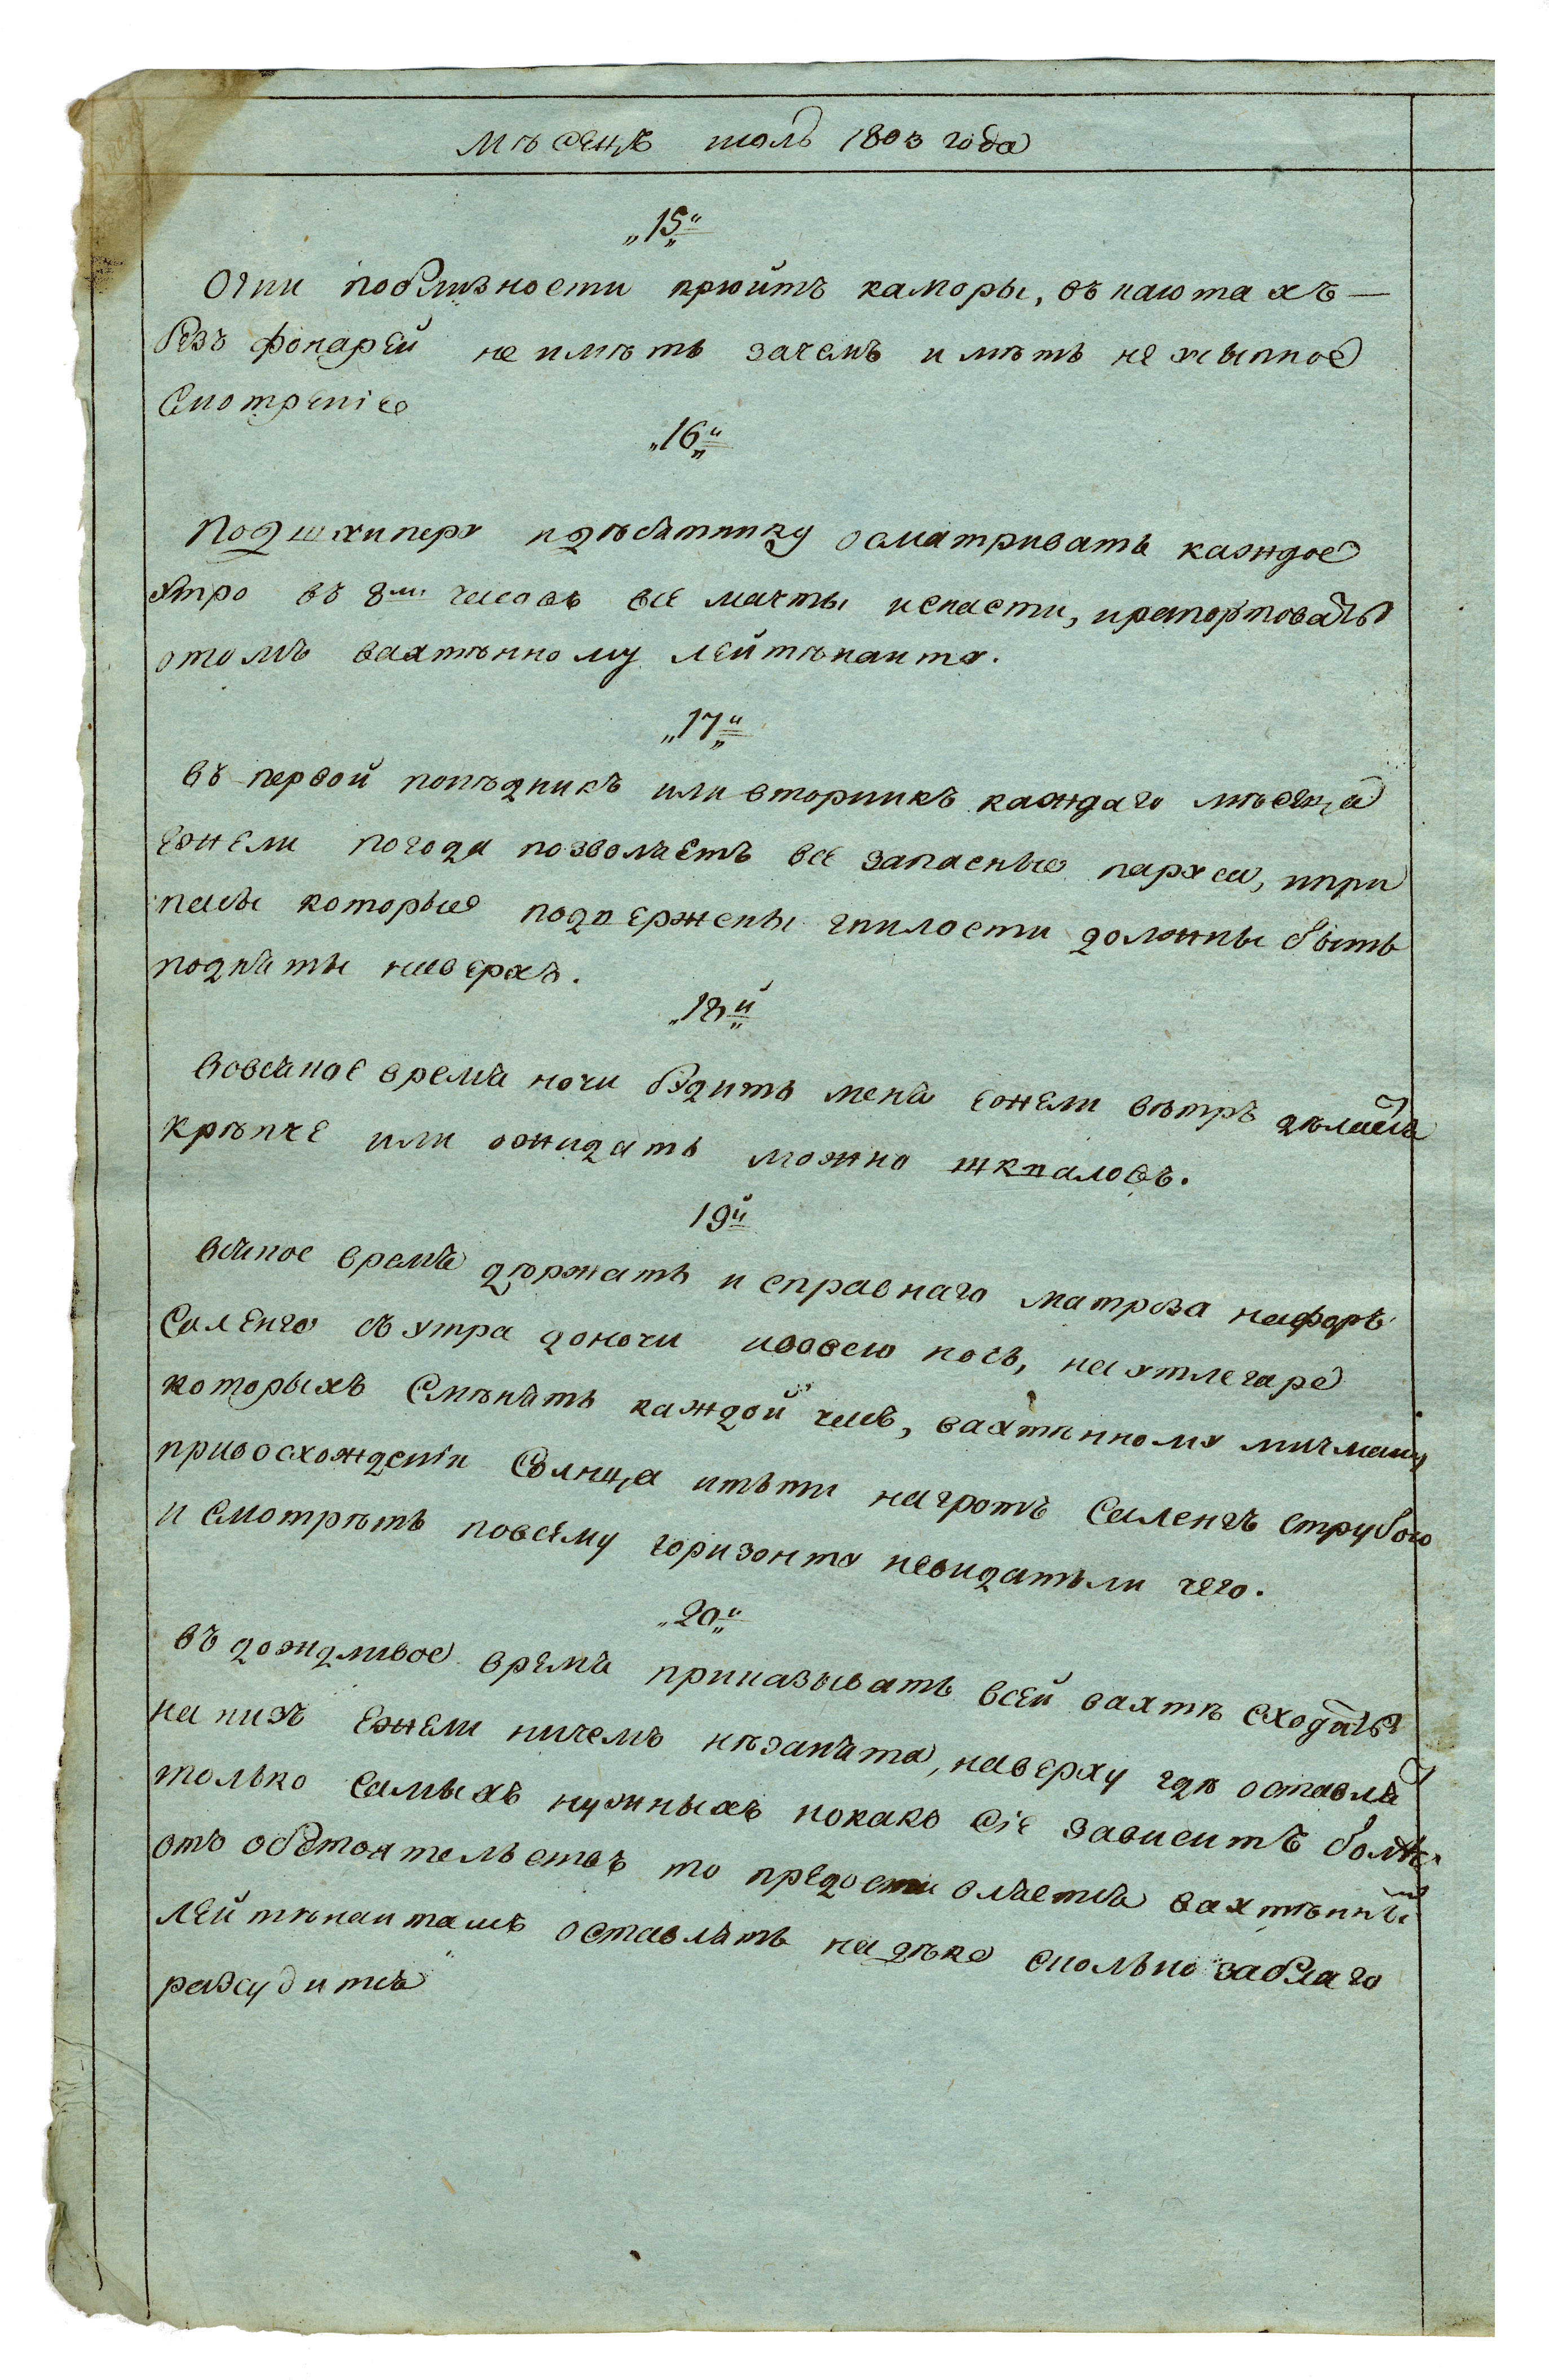 мѣсецъ июль 1803 года
„15„й
Огни поблизности крюйтъ каморы, въ каютахъ —
безъ фонарей не имѣть зачемъ имѣть нехибное
смотреніе
„16„й
Подшхиперу идѣсятнику осматривать каждое
утро въ 8мь часовъ все мачты испасти, ирапортовать
отомъ вахтѣнному лейтѣнанту.
„17„й
въ первой понѣдникъ или вторникъ каждаго мѣсяца
ежели погода позволяетъ все запасные паруса, ипри
пасы которые подвержены гнилости должны быть
подняты наверхъ.
„18„й
Вовсяное время ночи будить меня ежели вѣтръ дѣлаетъ
крѣпче или ожидать можно шкваловъ.
19й
всяное время дѣржать исправнаго матроза нафоръ
саленго съ утра доночи ивовсю ночь, наутлегаре
которыхъ смѣнять каждой часъ, вахтѣнному мичману
привосхожденіи солнца итьти нагротъ саленгъ струбою
и смотрѣть повсему горизонту невидатьли чего.
„20„й
въ дождливое время приказывать всей вахтѣ сходить
нанизъ ежели ничемъ нѣзанята, наверху гдѣ оставля
только самыхъ нужныхъ нокакъ сіе зависитъ болѣе
отъ обстоятельствъ то предоставляется вахтѣнны
лейтѣнантамъ оставлять надѣке сколько заблаго
разсудится